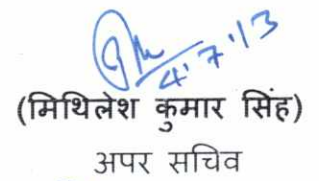 4.7.13
(मिथिलेश कुमार सिंह)
अपर सचिव